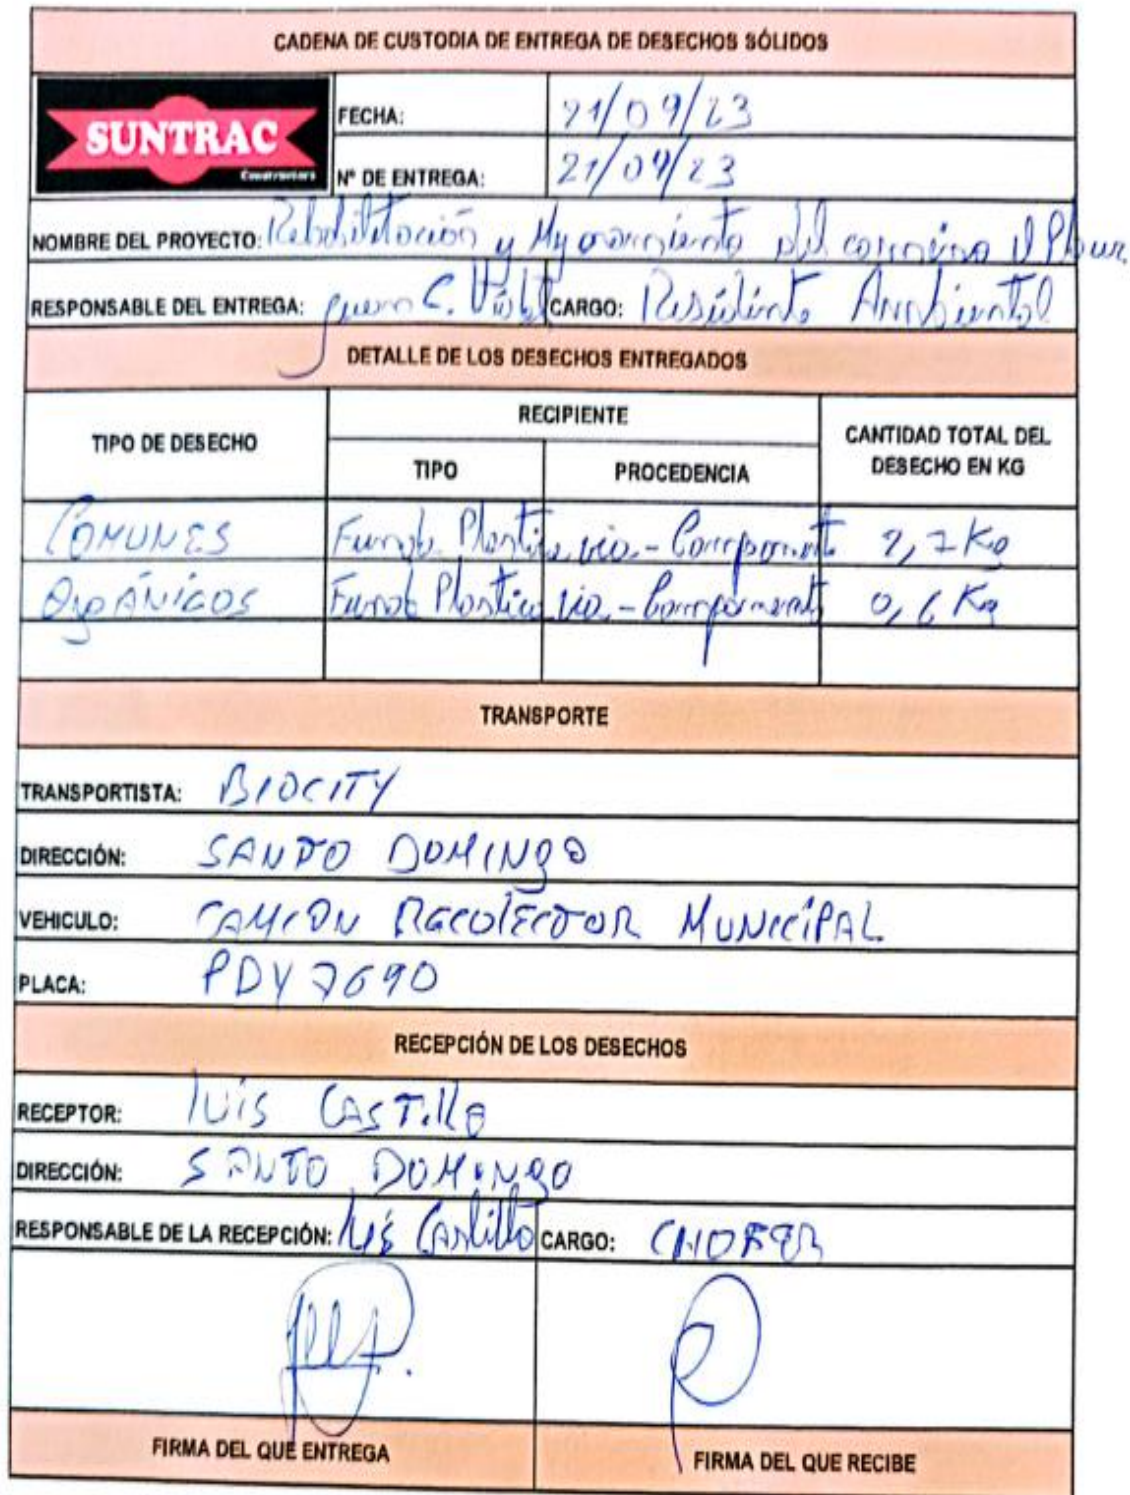 CADENA DE CUSTODIA DE ENTREGA DE DESECHOS SÓLIDOS
SUNTRAC
Constructora
FECHA: 21/04/23
N° DE ENTREGA: 21/04/23
NOMBRE DEL PROYECTO: Rehabilitación y Mejoramiento del camino el
RESPONSABLE DEL ENTREGA: Juan C. CARGO: Residente Ambiental
DETALLE DE LOS DESECHOS ENTREGADOS
TIPO DE DESECHO RECIPIENTE CANTIDAD TOTAL DEL DESECHO EN KG
TIPO PROCEDENCIA
COMUNES Funda Plastica via - Campament Kg
ORGÁNICOS Funda Plastica via - Campament 0,6 Kg
TRANSPORTE
TRANSPORTISTA: BIOCITY
DIRECCIÓN: SANTO DOMINGO
VEHICULO: CAMION RECOLECTOR MUNICIPAL
PLACA: PDY 7690
RECEPCIÓN DE LOS DESECHOS
RECEPTOR: LUIS CASTILLO
DIRECCIÓN: SANTO DOMINGO
RESPONSABLE DE LA RECEPCIÓN: Luis Castillo CARGO: CHOFER
FIRMA DEL QUE ENTREGA FIRMA DEL QUE RECIBE